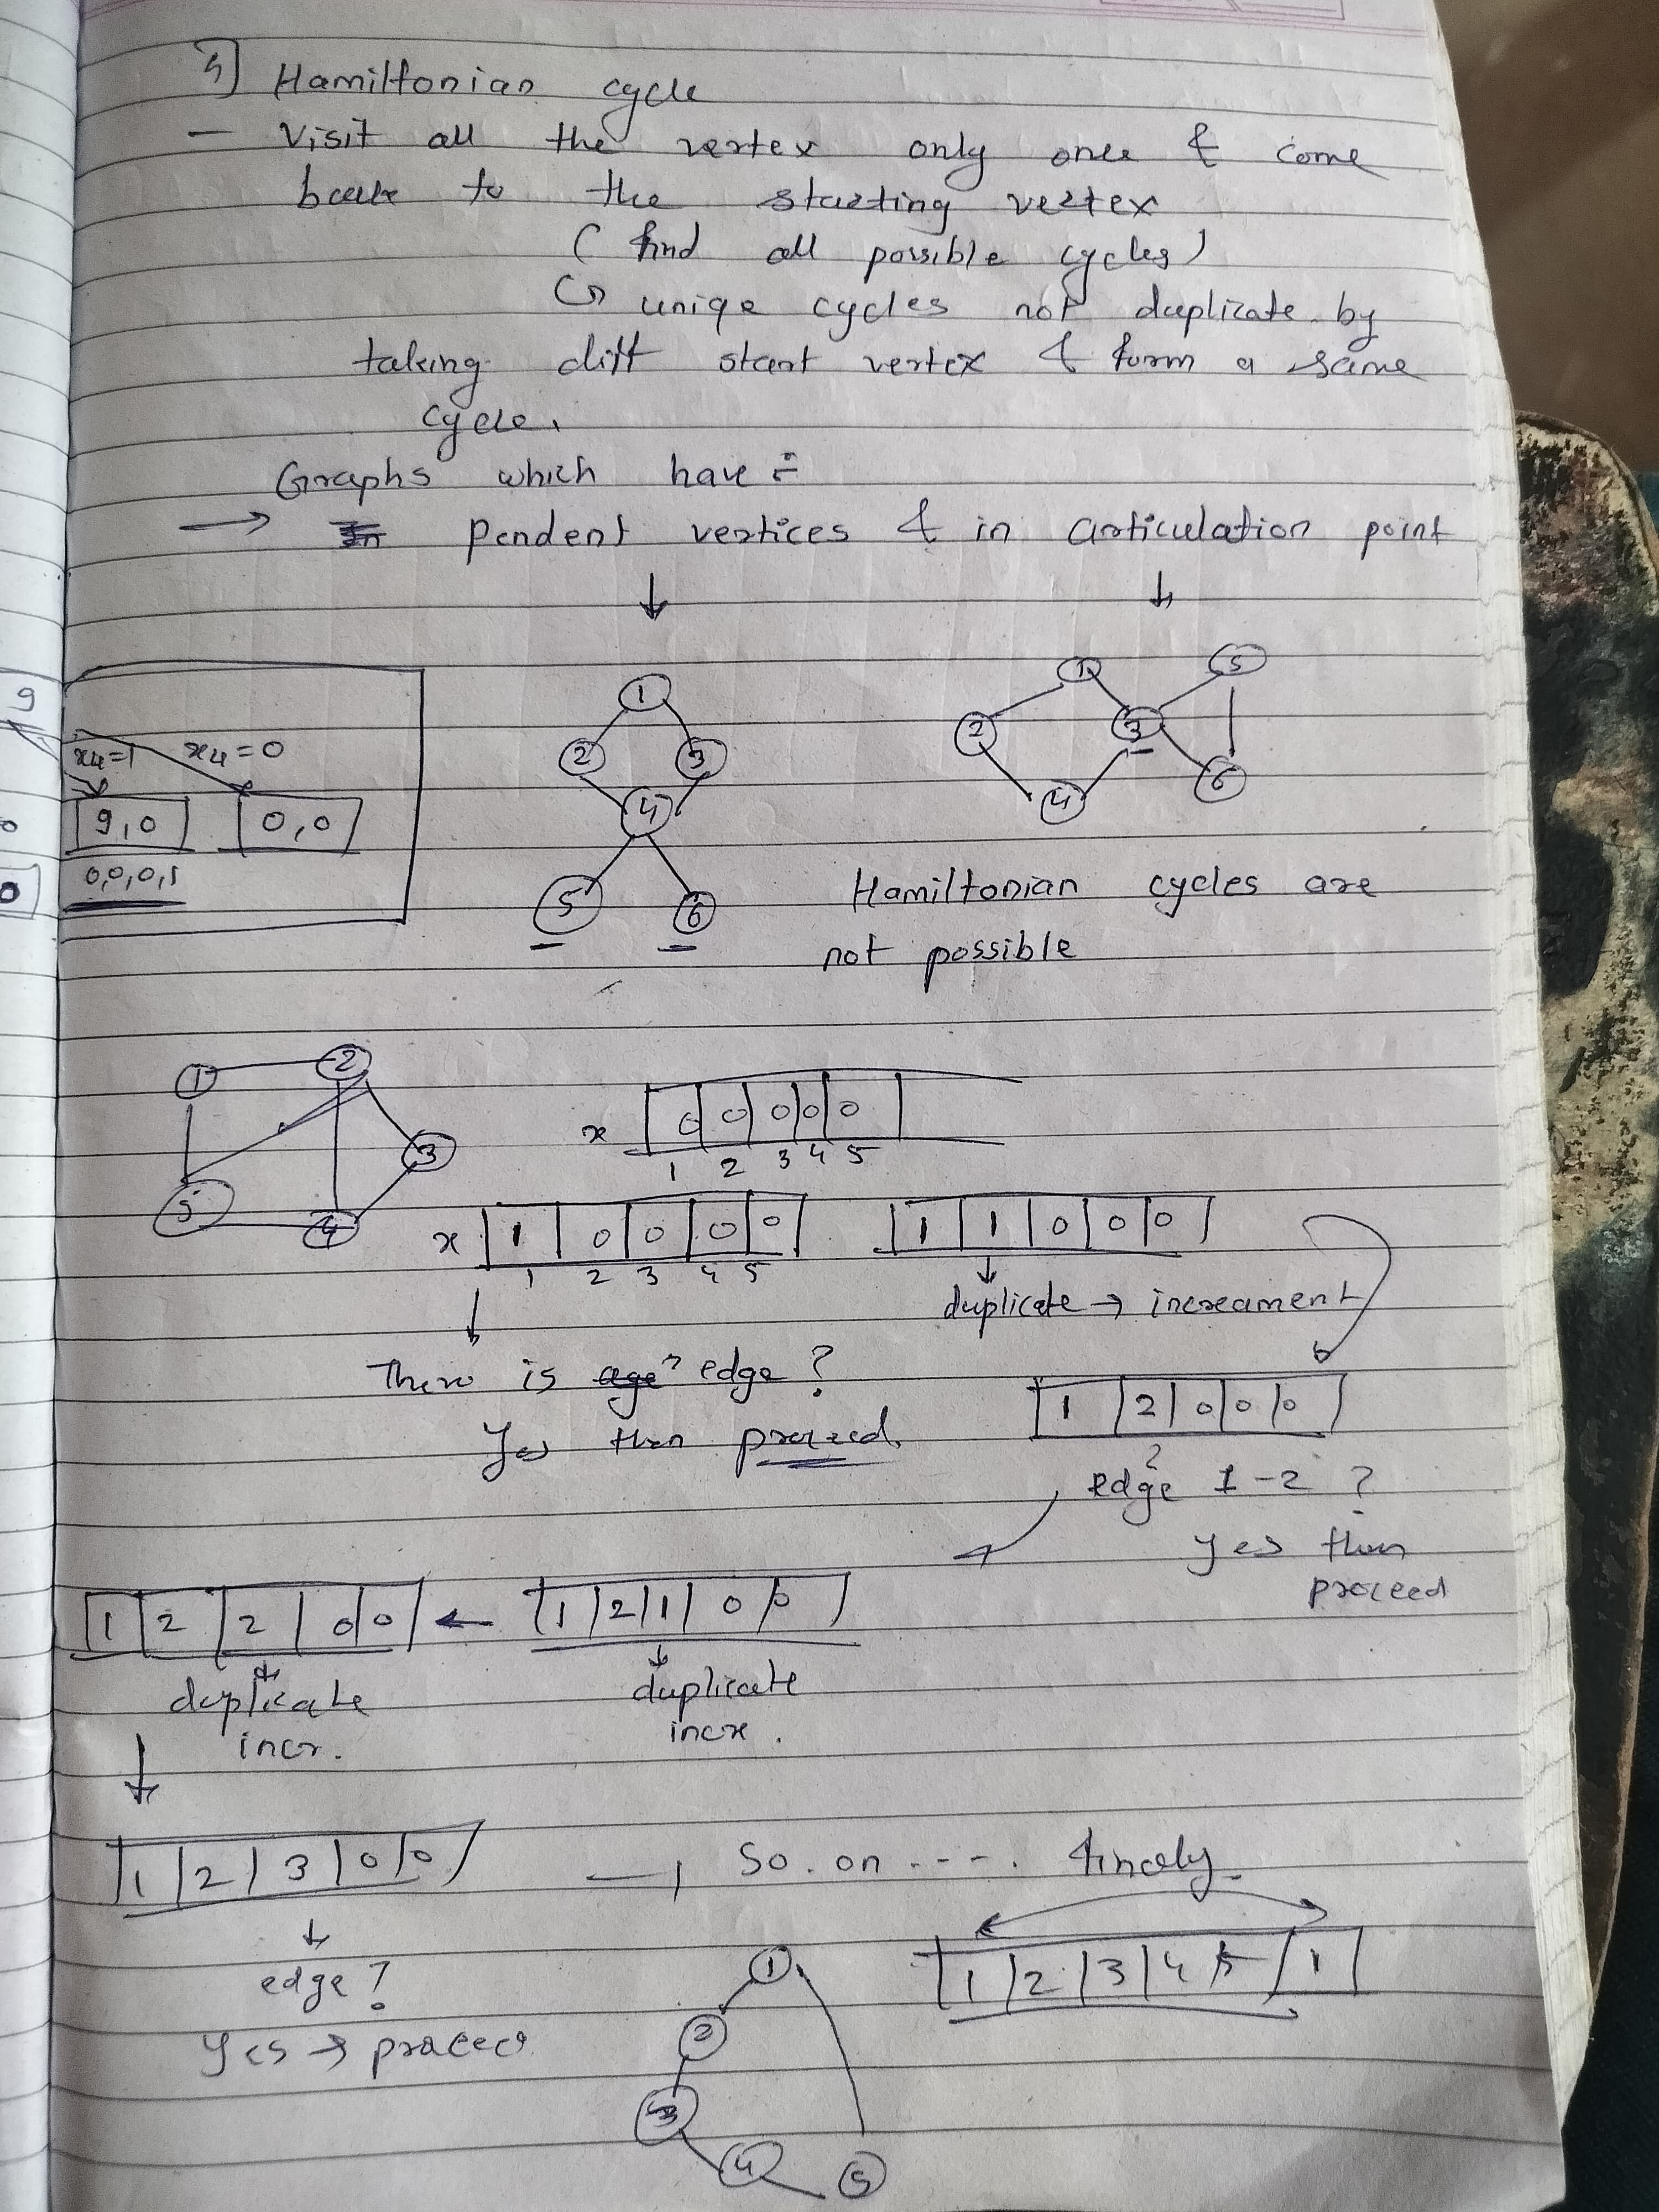 5] Hamiltonian cycle
- Visit all the vertex only once & come
back to the starting vertex
( find all possible cycles)
↳ unique cycles not duplicate by
taking diff start vertex & form a same
cycle.
Graphs which have :-
→ pendent vertices & in articulation point
↓ ↓
9
x4=1 x4=0
9,0 0,0
0,0,0,1
0
1
2 3
4
5 6
1 5
2 3
4 6
Hamiltonian cycles are
not possible
1 2
3
5 4
x 0 0 0 0 0
1 2 3 4 5
x 1 0 0 0 0
1 2 3 4 5
1 1 0 0 0
↓
duplicate → increament
There is edge ?
Yes then proceed.
1 2 0 0 0
?
edge 1-2 ?
Yes then
proceed
1 2 2 0 0 ← 1 2 1 0 0
duplicate
incr.
duplicate
incre.
1 2 3 0 0 → So. on ---- finaly
↓
edge ?
Yes → proceed
1 2 3 4 5 1
1
2
3
4 5